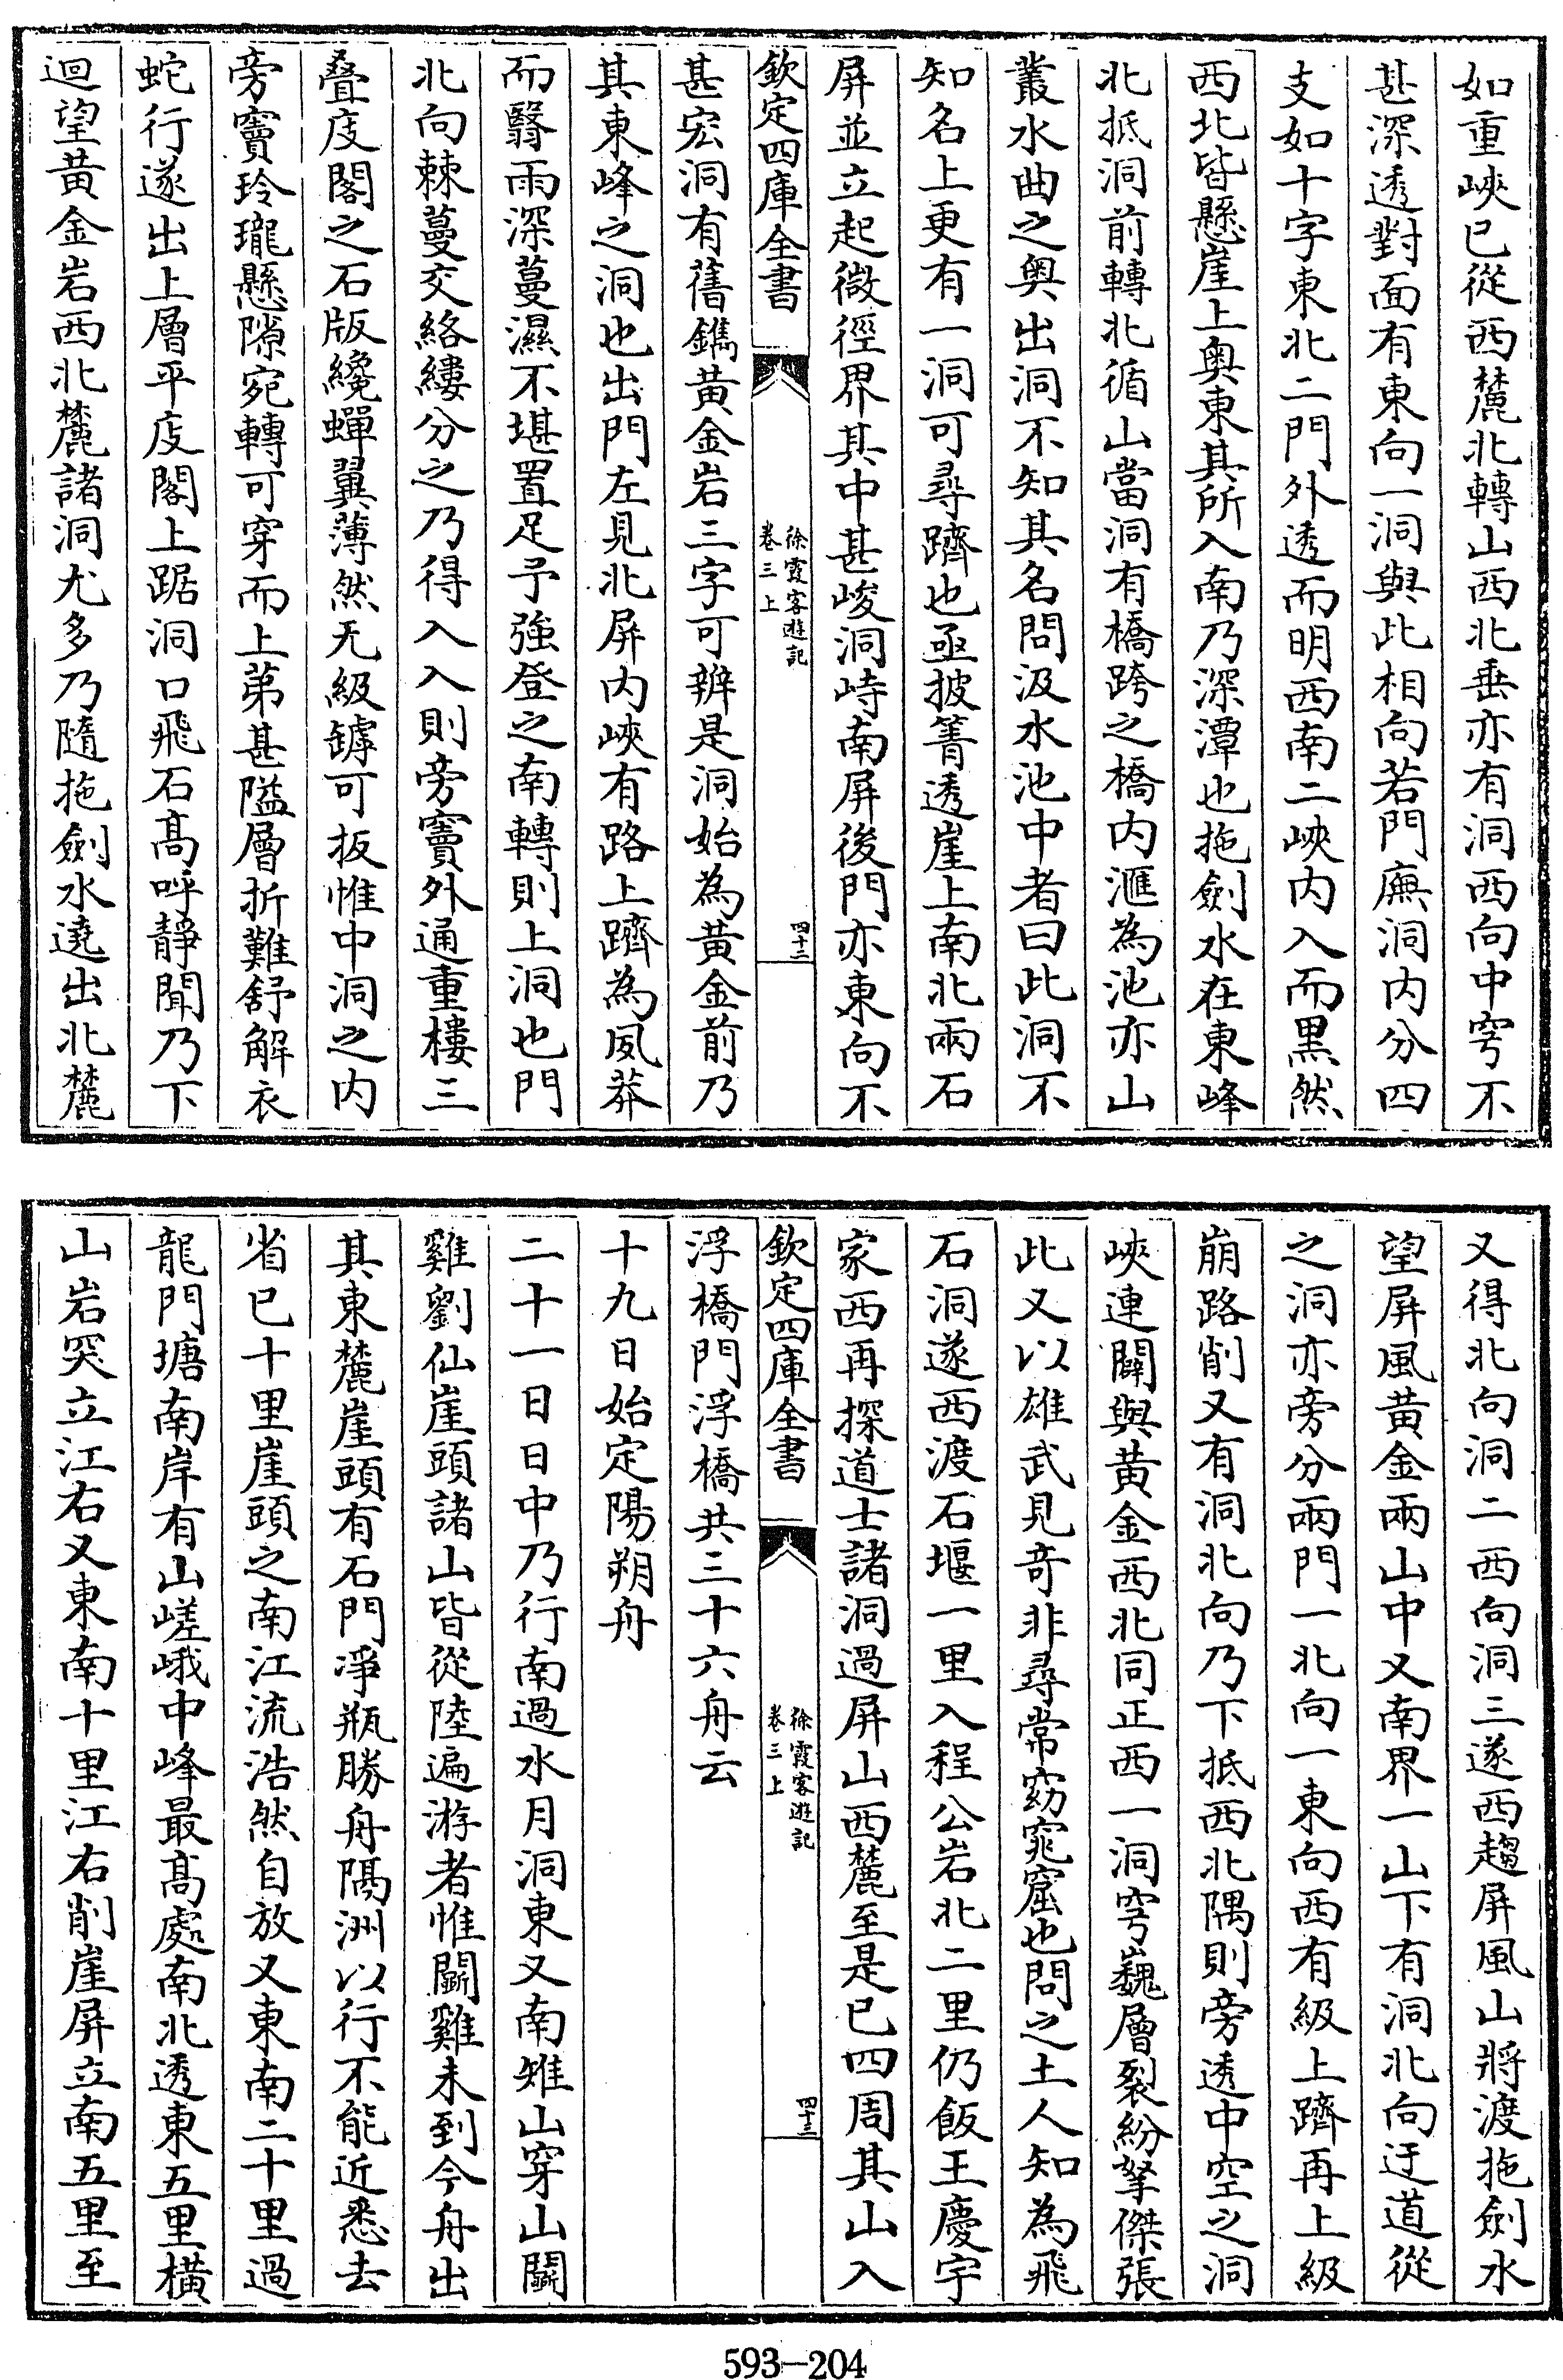 如重峽已從西麓北轉山西北垂亦有洞西向中穹不
甚深透對面有東向一洞與此相向若門廡洞内分四
支如十字東北二門外透而明西南二峽内入而黒然
西北皆懸崖上奥東其所入南乃深潭也拖劍水在東峰
北抵洞前轉北循山當洞有橋跨之橋内滙為池亦山
叢水曲之奥出洞不知其名問汲水池中者曰此洞不
知名上更有一洞可尋躋也亟披箐透崖上南北兩石
屏並立起微徑界其中甚峻洞峙南屏後門亦東向不
欽定四庫全書
徐霞客遊記
卷三上
四十三
甚宏洞有舊鐫黄金岩三字可辨是洞始為黄金前乃
其東峰之洞也出門左見北屏内峽有路上躋為夙莽
而翳雨深蔓濕不堪置足予強登之南轉則上洞也門
北向棘蔓交絡縷分之乃得入入則旁竇外通重樓三
叠庋閣之石版纔蟬翼薄然无級罅可扳惟中洞之内
旁竇玲瓏懸隙宛轉可穿而上第甚隘層折難舒解衣
蛇行遂出上層平庋閣上踞洞口飛石高呼靜聞乃下
迴望黄金岩西北麓諸洞尤多乃隨拖劍水遶出北麓
又得北向洞二西向洞三遂西趨屏風山將渡拖劍水
望屏風黄金兩山中又南界一山下有洞北向迂道從
之洞亦旁分兩門一北向一東向西有級上躋再上級
崩路削又有洞北向乃下抵西北隅則旁透中空之洞
峽連闢與黄金西北同正西一洞穹巍層裂紛拏傑張
此又以雄武見奇非尋常窈窕窟也問之土人知為飛
石洞遂西渡石堰一里入程公岩北二里仍飯王慶宇
家西再探道士諸洞過屏山西麓至是已四周其山入
欽定四庫全書
徐霞客遊記
卷三上
四十三
浮橋門浮橋共三十六舟云
十九日始定陽朔舟
二十一日日中乃行南過水月洞東又南雉山穿山鬭
雞劉仙崖頭諸山皆從陸遍游者惟鬭雞未到今舟出
其東麓崖頭有石門凈瓶勝舟隔洲以行不能近悉去
省已十里崖頭之南江流浩然自放又東南二十里過
龍門塘南岸有山嵯峨中峰最髙處南北透東五里横
山岩突立江右又東南十里江右削崖屏立南五里至
593-204